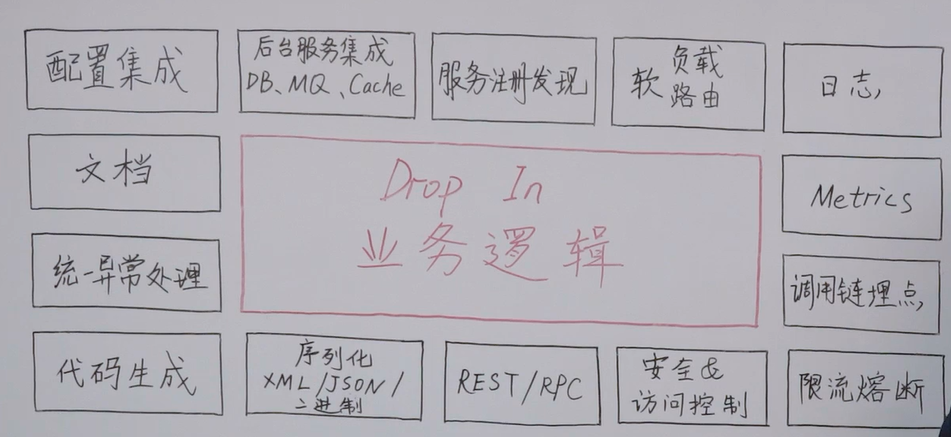 配置集成
后台服务集成
DB、MQ、Cache
服务注册发现
软
负载
路由
日志,
文档
Drop In
业务逻辑
Metrics
统一异常处理
调用链埋点,
代码生成
序列化
XML/JSON/
二进制
REST/RPC
安全&
访问控制
限流熔断